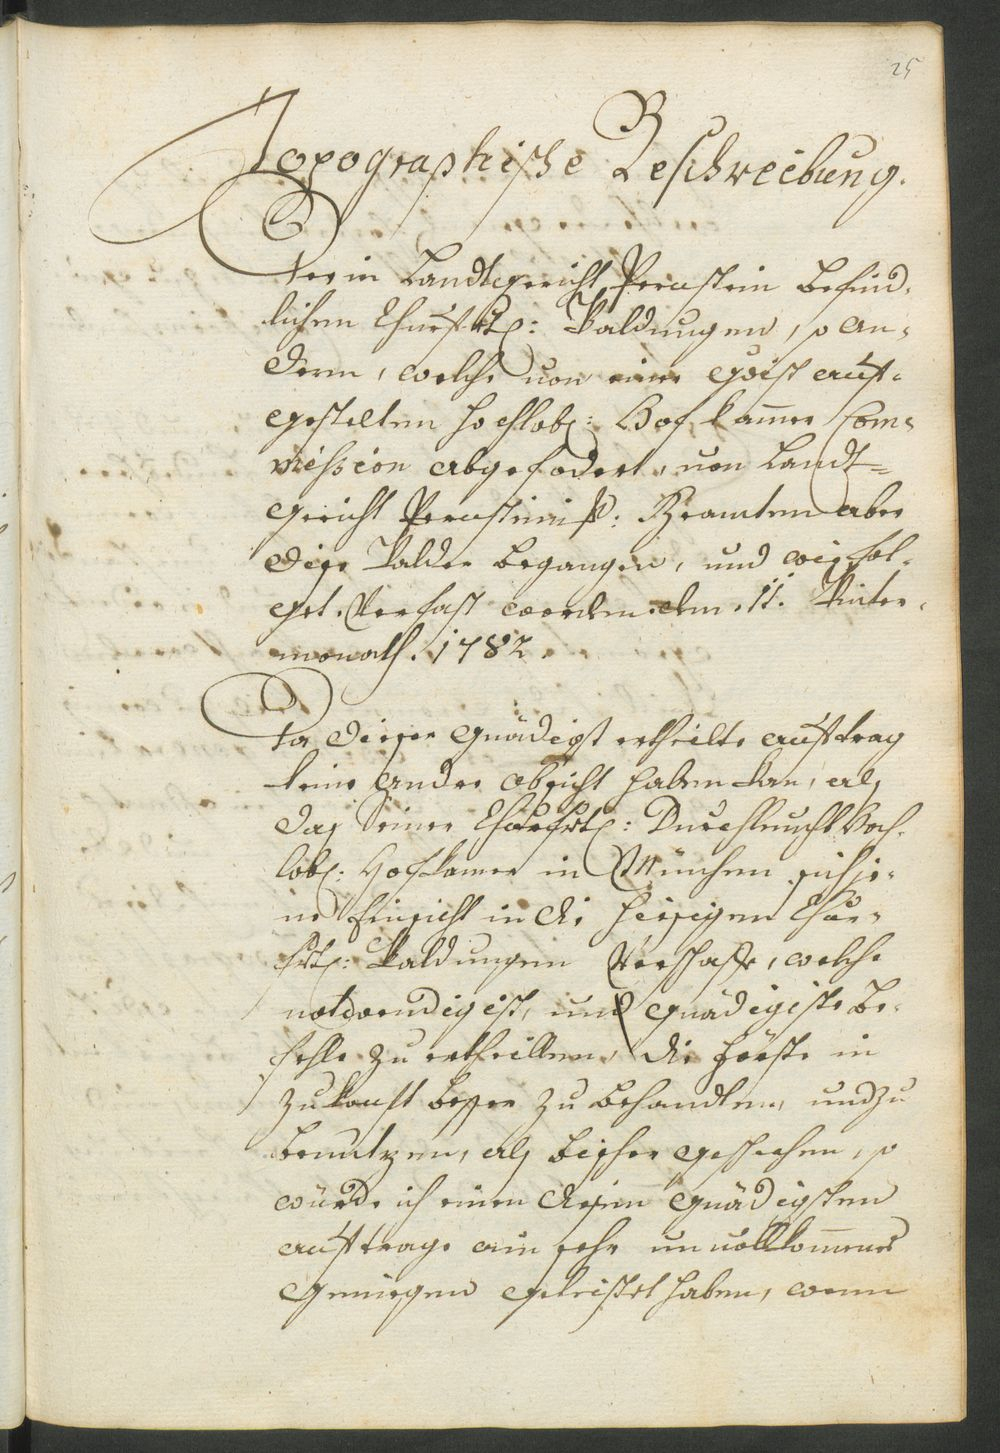 25
Topographische Beschreibung.
Der in Landtgericht Pernstein befind-
lichen Churfrtl: Waldungen, so an-
dern, welche von einer gdist auf-
gestelten hochlobl: Hofkamer Com-
mission abgefodert, von Landt=
gericht Pernsteinisch: Beamten aber
dise Walder begangen, und wie fol-
get. Verfast worden. den. 11. Winter-
monath. 1782.
Da dieser gnädigst ertheilte auftrag
keine andre absicht haben kan, als
das Seiner Churfrtl: Durchleucht hoch-
lobl: Hofkamer in München sich je-
ne Einsicht in die hiesigen Chur-
frtl: Waldungen Verschaffe, welche
notwendig ist, und gnädigiste be-
fehle zu ertheillen, die Förste in
zukonft besser zu behandlen, und zu
benutzen, als bisher geschehen, so
würde ich einen disen gnädigsten
auftrage ein sehr unvollkommenes
geniegen geleistet haben, wenn